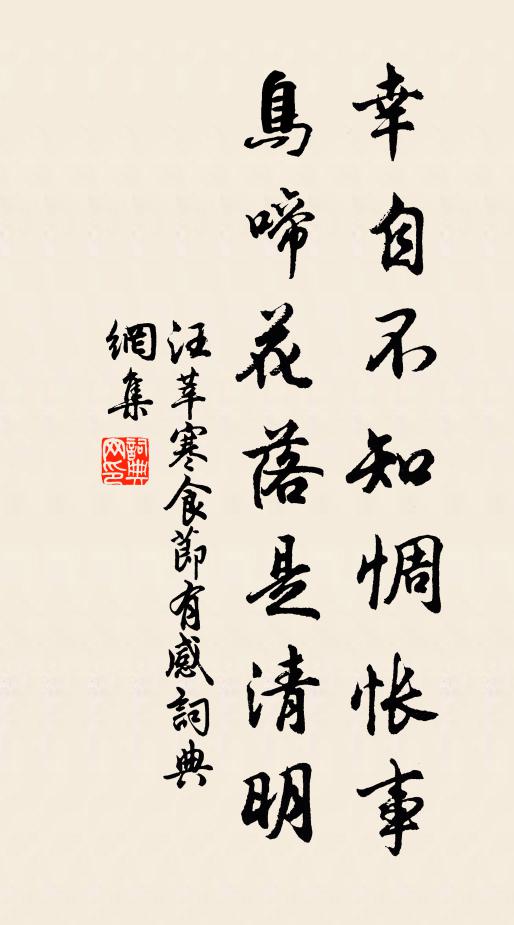 幸自不知惆悵事
鳥啼花落是清明
汪莘寒食節有感詞典
網集
詞典
网印